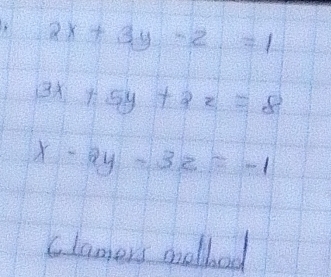 2x + 3y - z = 1
3x + 5y + 2z = 8
x - 2y - 3z = -1
Clamers method